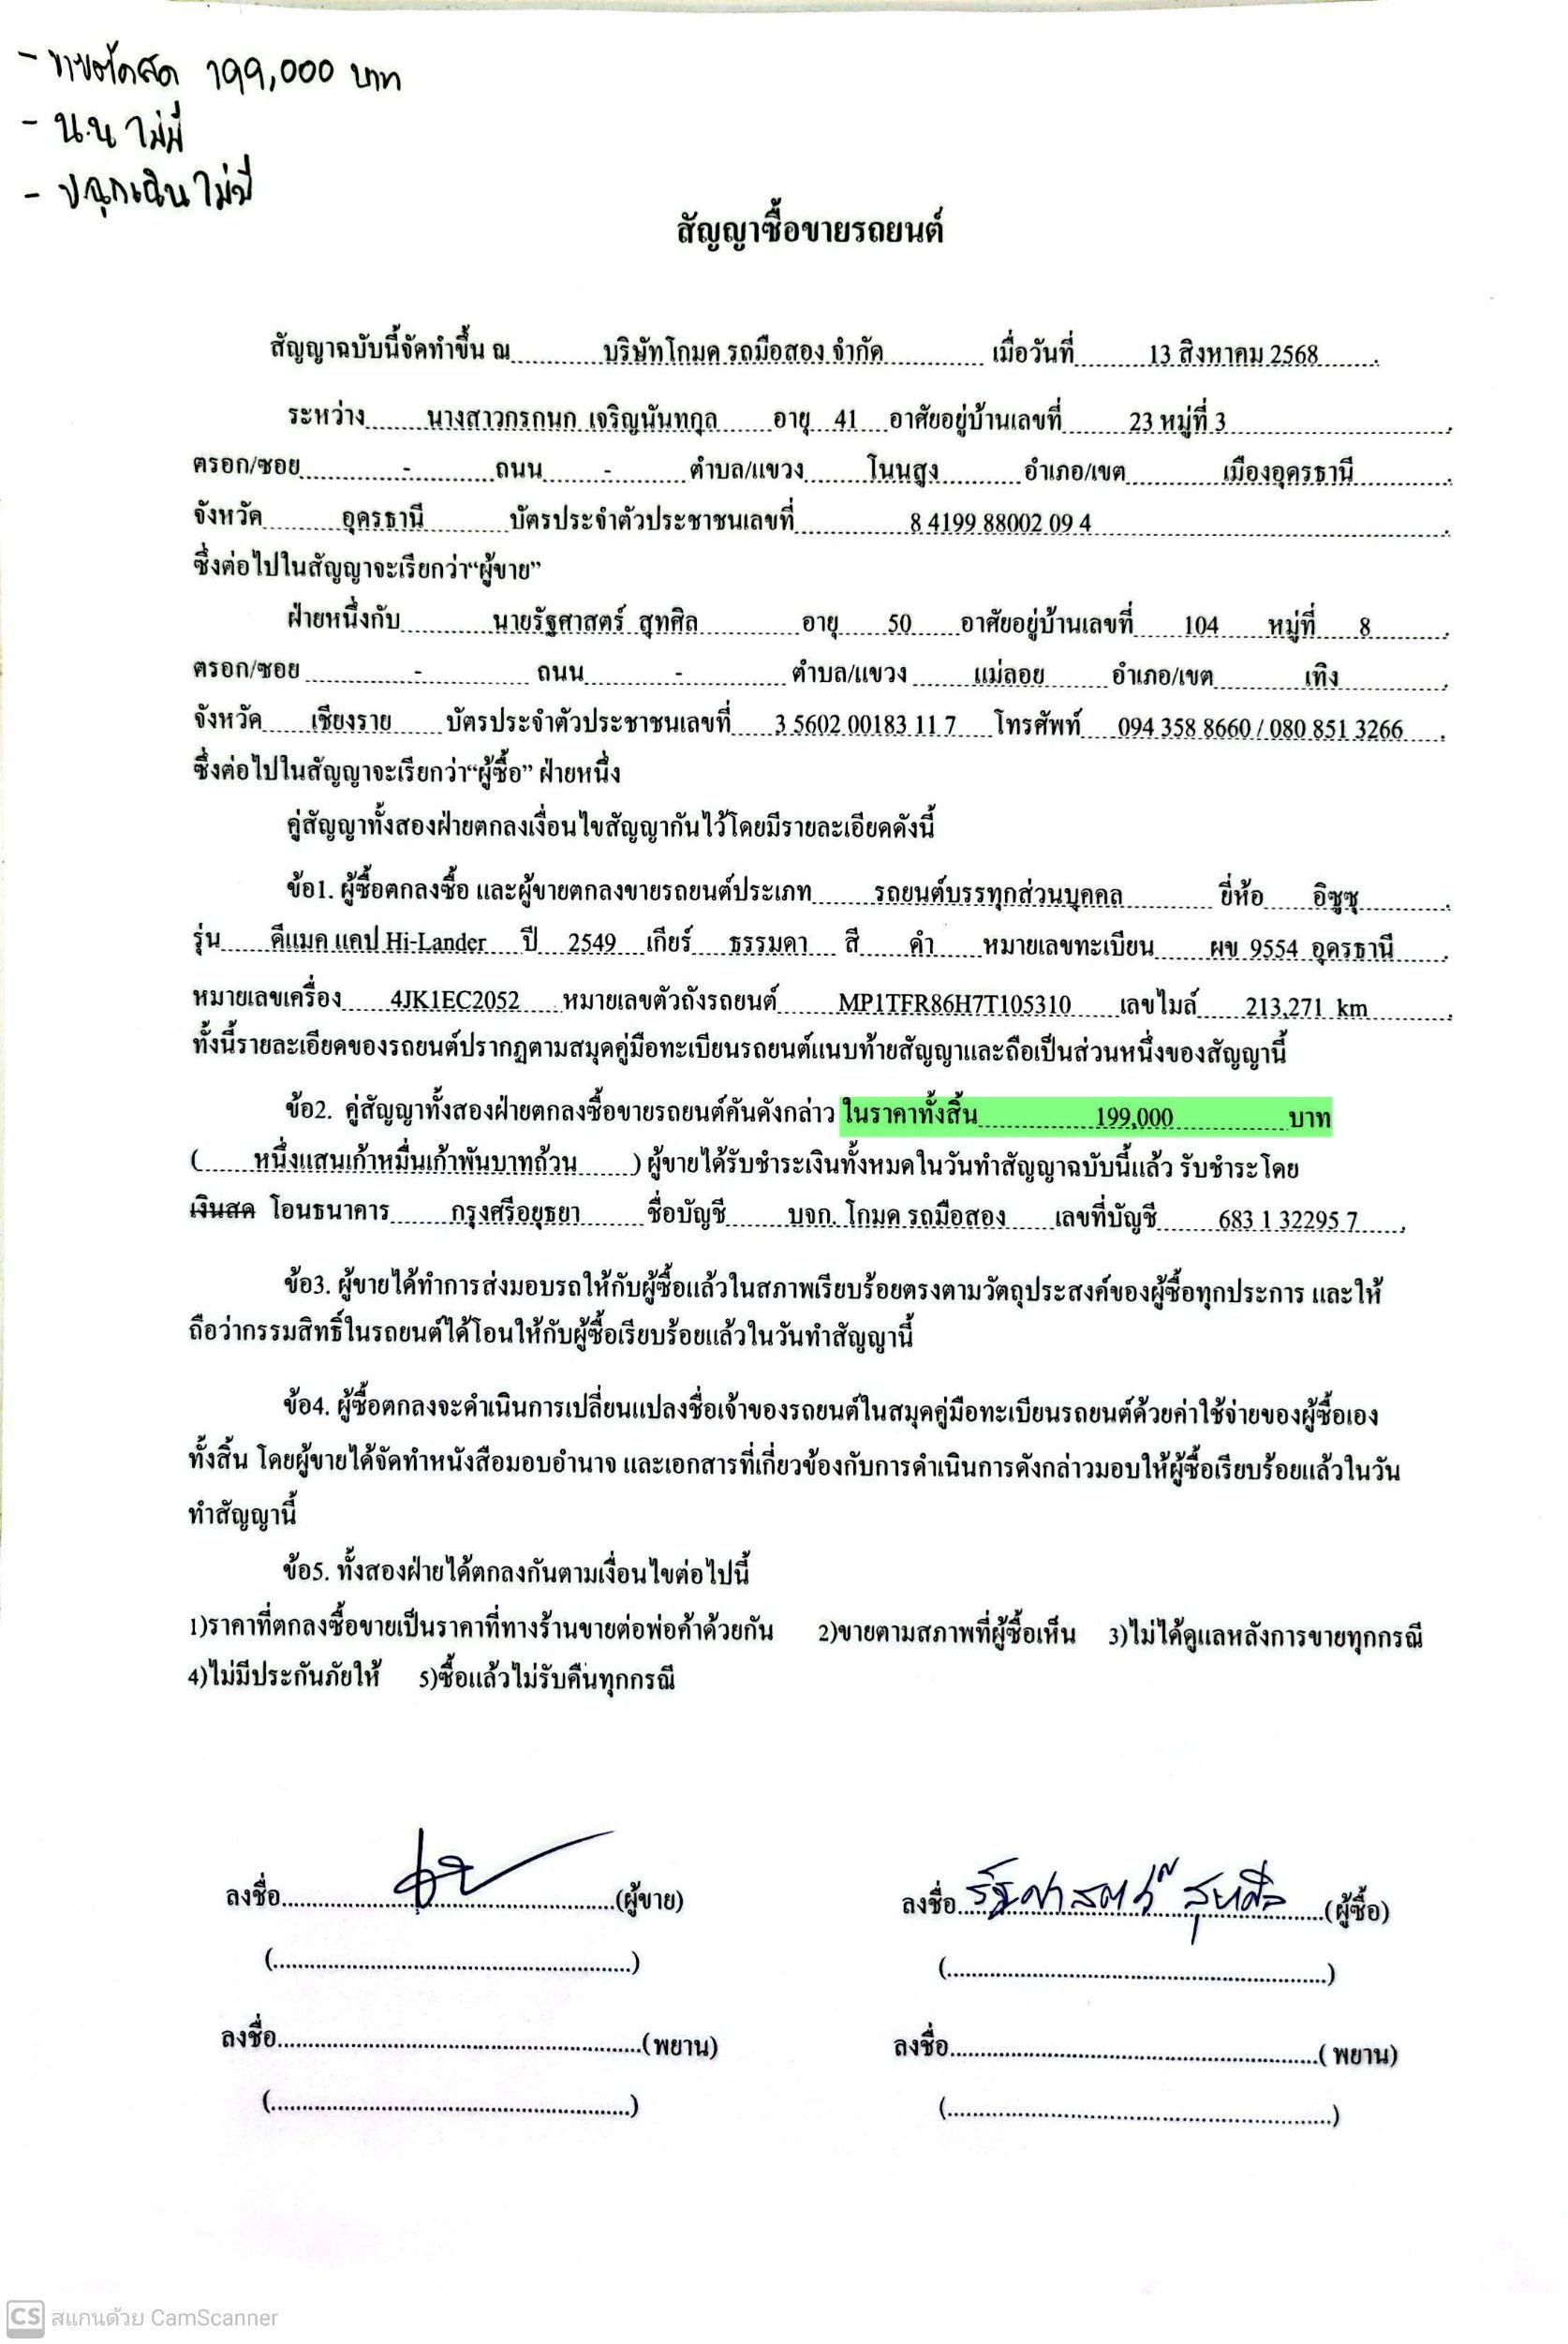 - ขายตัดสด 199,000 บาท
- น.น ไม่มี
- ป.ฉุกเฉิน ไม่มี
สัญญาซื้อขายรถยนต์
สัญญาฉบับนี้จัดทำขึ้น ณ บริษัทโกมด รถมือสอง จำกัด เมื่อวันที่ 13 สิงหาคม 2568
ระหว่าง นางสาวกรกนก เจริญนันทกุล อายุ 41 อาศัยอยู่บ้านเลขที่ 23 หมู่ที่ 3
ตรอก/ซอย - ถนน - ตำบล/แขวง โนนสูง อำเภอ/เขต เมืองอุดรธานี
จังหวัด อุดรธานี บัตรประจำตัวประชาชนเลขที่ 8 4199 88002 09 4
ซึ่งต่อไปในสัญญาจะเรียกว่า“ผู้ขาย”
ฝ่ายหนึ่งกับ นายรัฐศาสตร์ สุทศิล อายุ 50 อาศัยอยู่บ้านเลขที่ 104 หมู่ที่ 8
ตรอก/ซอย - ถนน - ตำบล/แขวง แม่ลอย อำเภอ/เขต เทิง
จังหวัด เชียงราย บัตรประจำตัวประชาชนเลขที่ 3 5602 00183 11 7 โทรศัพท์ 094 358 8660 / 080 851 3266
ซึ่งต่อไปในสัญญาจะเรียกว่า“ผู้ซื้อ” ฝ่ายหนึ่ง
คู่สัญญาทั้งสองฝ่ายตกลงเงื่อนไขสัญญากันไว้โดยมีรายละเอียดดังนี้
ข้อ1. ผู้ซื้อตกลงซื้อ และผู้ขายตกลงขายรถยนต์ประเภท รถยนต์บรรทุกส่วนบุคคล ยี่ห้อ อิซูซุ
รุ่น ดีแมค แคป Hi-Lander ปี 2549 เกียร์ ธรรมดา สี ดำ หมายเลขทะเบียน ผข 9554 อุดรธานี
หมายเลขเครื่อง 4JK1EC2052 หมายเลขตัวถังรถยนต์ MP1TFR86H7T105310 เลขไมล์ 213,271 km
ทั้งนี้รายละเอียดของรถยนต์ปรากฏตามสมุดคู่มือทะเบียนรถยนต์แนบท้ายสัญญาและถือเป็นส่วนหนึ่งของสัญญานี้
ข้อ2. คู่สัญญาทั้งสองฝ่ายตกลงซื้อขายรถยนต์คันดังกล่าว ในราคาทั้งสิ้น 199,000 บาท
( หนึ่งแสนเก้าหมื่นเก้าพันบาทถ้วน ) ผู้ขายได้รับชำระเงินทั้งหมดในวันทำสัญญาฉบับนี้แล้ว รับชำระโดย
เงินสด โอนธนาคาร กรุงศรีอยุธยา ชื่อบัญชี บจก. โกมด รถมือสอง เลขที่บัญชี 683 1 32295 7
ข้อ3. ผู้ขายได้ทำการส่งมอบรถให้กับผู้ซื้อแล้วในสภาพเรียบร้อยตรงตามวัตถุประสงค์ของผู้ซื้อทุกประการ และให้
ถือว่ากรรมสิทธิ์ในรถยนต์ได้โอนให้กับผู้ซื้อเรียบร้อยแล้วในวันทำสัญญานี้
ข้อ4. ผู้ซื้อตกลงจะดำเนินการเปลี่ยนแปลงชื่อเจ้าของรถยนต์ในสมุดคู่มือทะเบียนรถยนต์ด้วยค่าใช้จ่ายของผู้ซื้อเอง
ทั้งสิ้น โดยผู้ขายได้จัดทำหนังสือมอบอำนาจ และเอกสารที่เกี่ยวข้องกับการดำเนินการดังกล่าวมอบให้ผู้ซื้อเรียบร้อยแล้วในวัน
ทำสัญญานี้
ข้อ5. ทั้งสองฝ่ายได้ตกลงกันตามเงื่อนไขต่อไปนี้
1)ราคาที่ตกลงซื้อขายเป็นราคาที่ทางร้านขายต่อพ่อค้าด้วยกัน 2)ขายตามสภาพที่ผู้ซื้อเห็น 3)ไม่ได้ดูแลหลังการขายทุกกรณี
4)ไม่มีประกันภัยให้ 5)ซื้อแล้วไม่รับคืนทุกกรณี
ลงชื่อ (ผู้ขาย) ลงชื่อ รัฐศาสตร์ สุทศิล (ผู้ซื้อ)
ลงชื่อ (พยาน) ลงชื่อ ( พยาน)
CS สแกนด้วย CamScanner